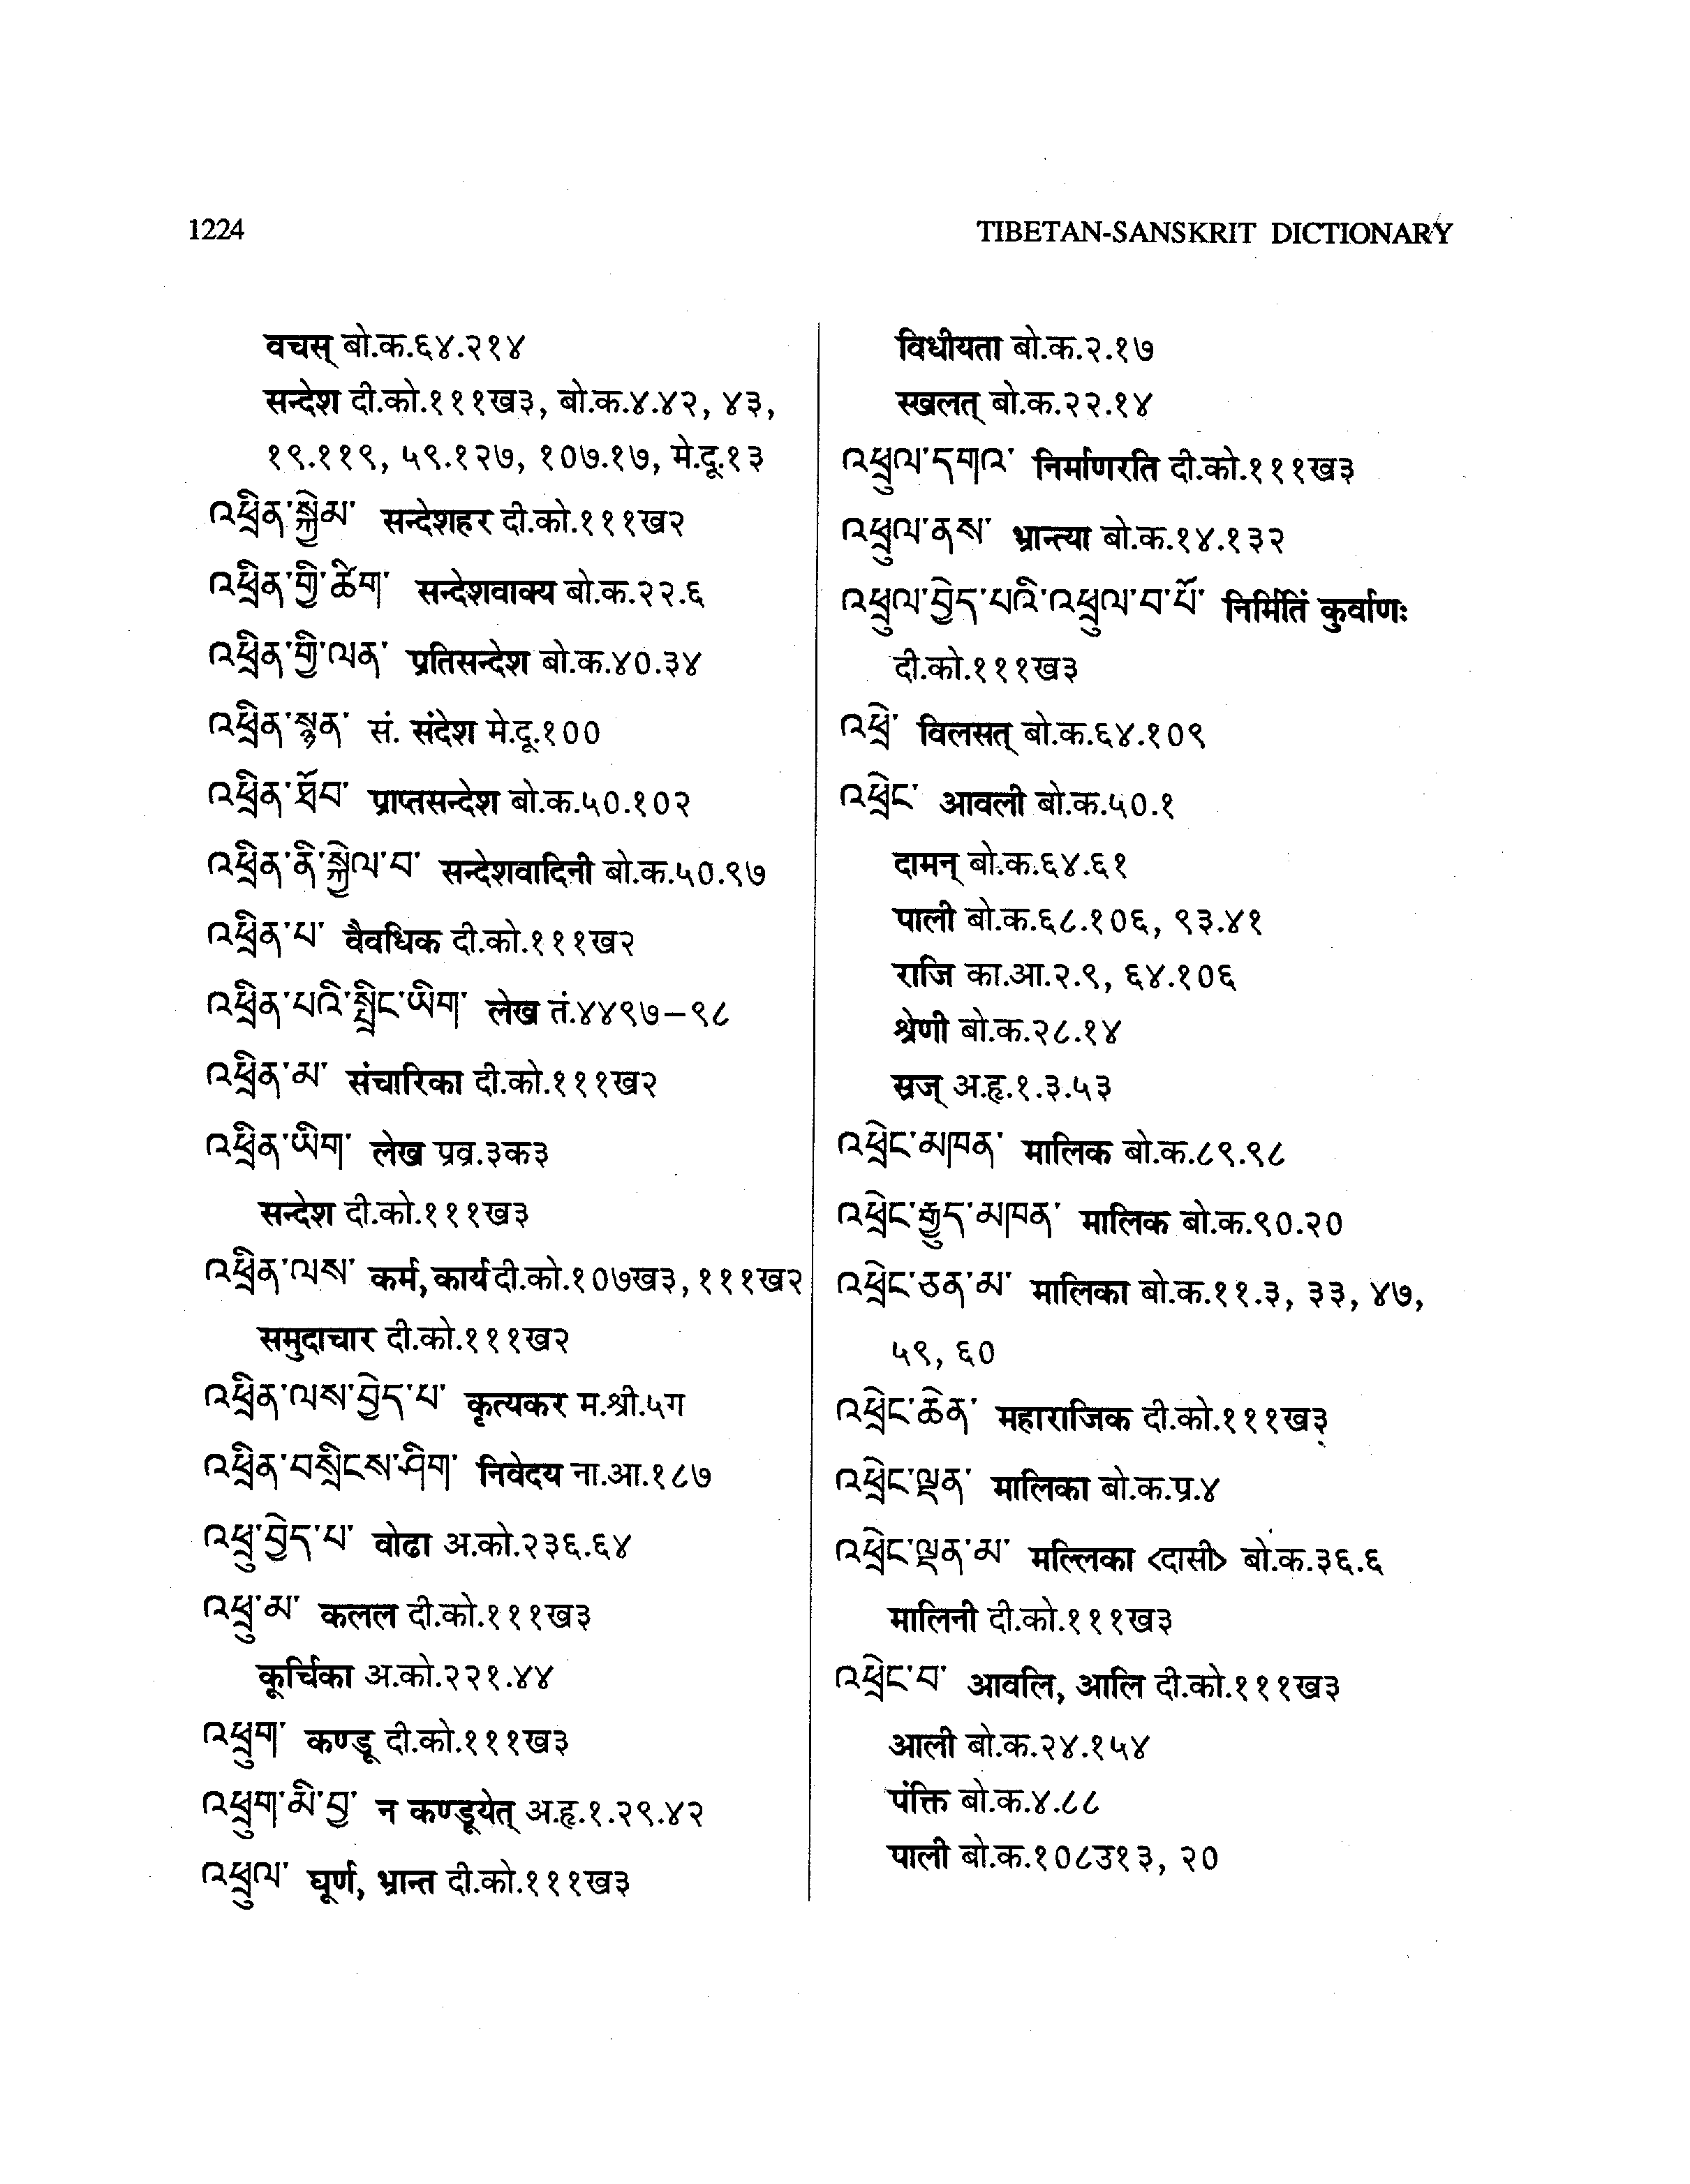 1224
TIBETAN-SANSKRIT DICTIONARY
वचस् बो.क.६४.२१४
सन्देश दी.को.१११ख३, बो.क.४.४२, ४३,
१९.११९, ५९.१२७, १०७.१७, मे.दू.१३
འཕྲིན་སྐྱེམ་ सन्देशहर दी.को.१११ख२
འཕྲིན་གྱི་ཚིག་ सन्देशवाक्य बो.क.२२.६
འཕྲིན་གྱི་ལན་ प्रतिसन्देश बो.क.४०.३४
འཕྲིན་སྙན་ सं. संदेश मे.दू.१००
འཕྲིན་ཐོབ་ प्राप्तसन्देश बो.क.५०.१०२
འཕྲིན་ནི་སྐྱེལ་བ་ सन्देशवादिनी बो.क.५०.९७
འཕྲིན་པ་ वैवधिक दी.को.१११ख२
འཕྲིན་པའི་སྤྲིང་ཡིག་ लेख तं.४४९७–९८
འཕྲིན་མ་ संचारिका दी.को.१११ख२
འཕྲིན་ཡིག་ लेख प्रव्र.३क३
सन्देश दी.को.१११ख३
འཕྲིན་ལས་ कर्म, कार्य दी.को.१०७ख३, १११ख२
समुदाचार दी.को.१११ख२
འཕྲིན་ལས་བྱེད་པ་ कृत्यकर म.श्री.५ग
འཕྲིན་བསྲིངས་ཤིག་ निवेदय ना.आ.१८७
འཕྲུ་བྱེད་པ་ वोढा अ.को.२३६.६४
འཕྲུ་མ་ कलल दी.को.१११ख३
कूर्चिका अ.को.२२१.४४
འཕྲུག་ कण्डू दी.को.१११ख३
འཕྲུག་མི་བྱ་ न कण्डूयेत् अ.हृ.१.२९.४२
འཕྲུལ་ घूर्ण, भ्रान्त दी.को.१११ख३
विधीयता बो.क.२.१७
स्खलत् बो.क.२२.१४
འཕྲུལ་དགའ་ निर्माणरति दी.को.१११ख३
འཕྲུལ་ནས་ भ्रान्त्या बो.क.१४.१३२
འཕྲུལ་བྱེད་པའི་འཕྲུལ་བ་པོ་ निर्मितिं कुर्वाणः
दी.को.१११ख३
འཕྲེ་ विलसत् बो.क.६४.१०९
འཕྲེང་ आवली बो.क.५०.१
दामन् बो.क.६४.६१
पाली बो.क.६८.१०६, ९३.४१
राजि का.आ.२.९, ६४.१०६
श्रेणी बो.क.२८.१४
स्रज् अ.हृ.१.३.५३
འཕྲེང་མཁན་ मालिक बो.क.८९.९८
འཕྲེང་རྒྱུད་མཁན་ मालिक बो.क.९०.२०
འཕྲེང་ཅན་མ་ मालिका बो.क.११.३, ३३, ४७,
५९, ६०
འཕྲེང་ཆེན་ महाराजिक दी.को.१११ख३
འཕྲེང་ལྡན་ मालिका बो.क.प्र.४
འཕྲེང་ལྡན་མ་ मल्लिका <दासी> बो.क.३६.६
मालिनी दी.को.१११ख३
འཕྲེང་བ་ आवलि, आलि दी.को.१११ख३
आली बो.क.२४.१५४
पंक्ति बो.क.४.८८
पाली बो.क.१०८उ१३, २०